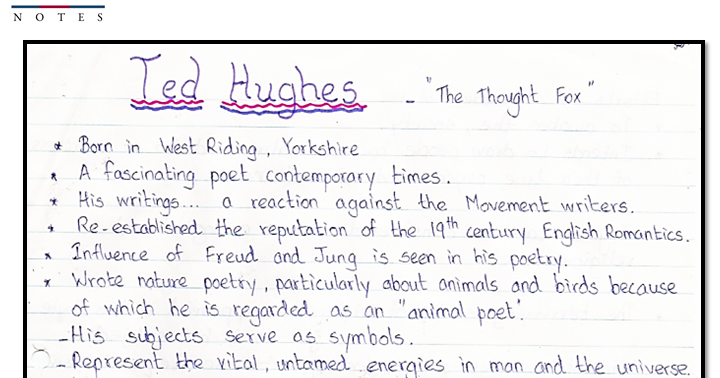 NOTES
Ted Hughes - "The Thought Fox"
* Born in West Riding, Yorkshire
* A fascinating poet contemporary times.
* His writings... a reaction against the Movement writers.
* Re-established the reputation of the 19th century English Romantics.
* Influence of Freud and Jung is seen in his poetry.
* Wrote nature poetry, particularly about animals and birds because
of which he is regarded as an "animal poet'.
- His subjects serve as symbols.
- Represent the vital, untamed energies in man and the universe.